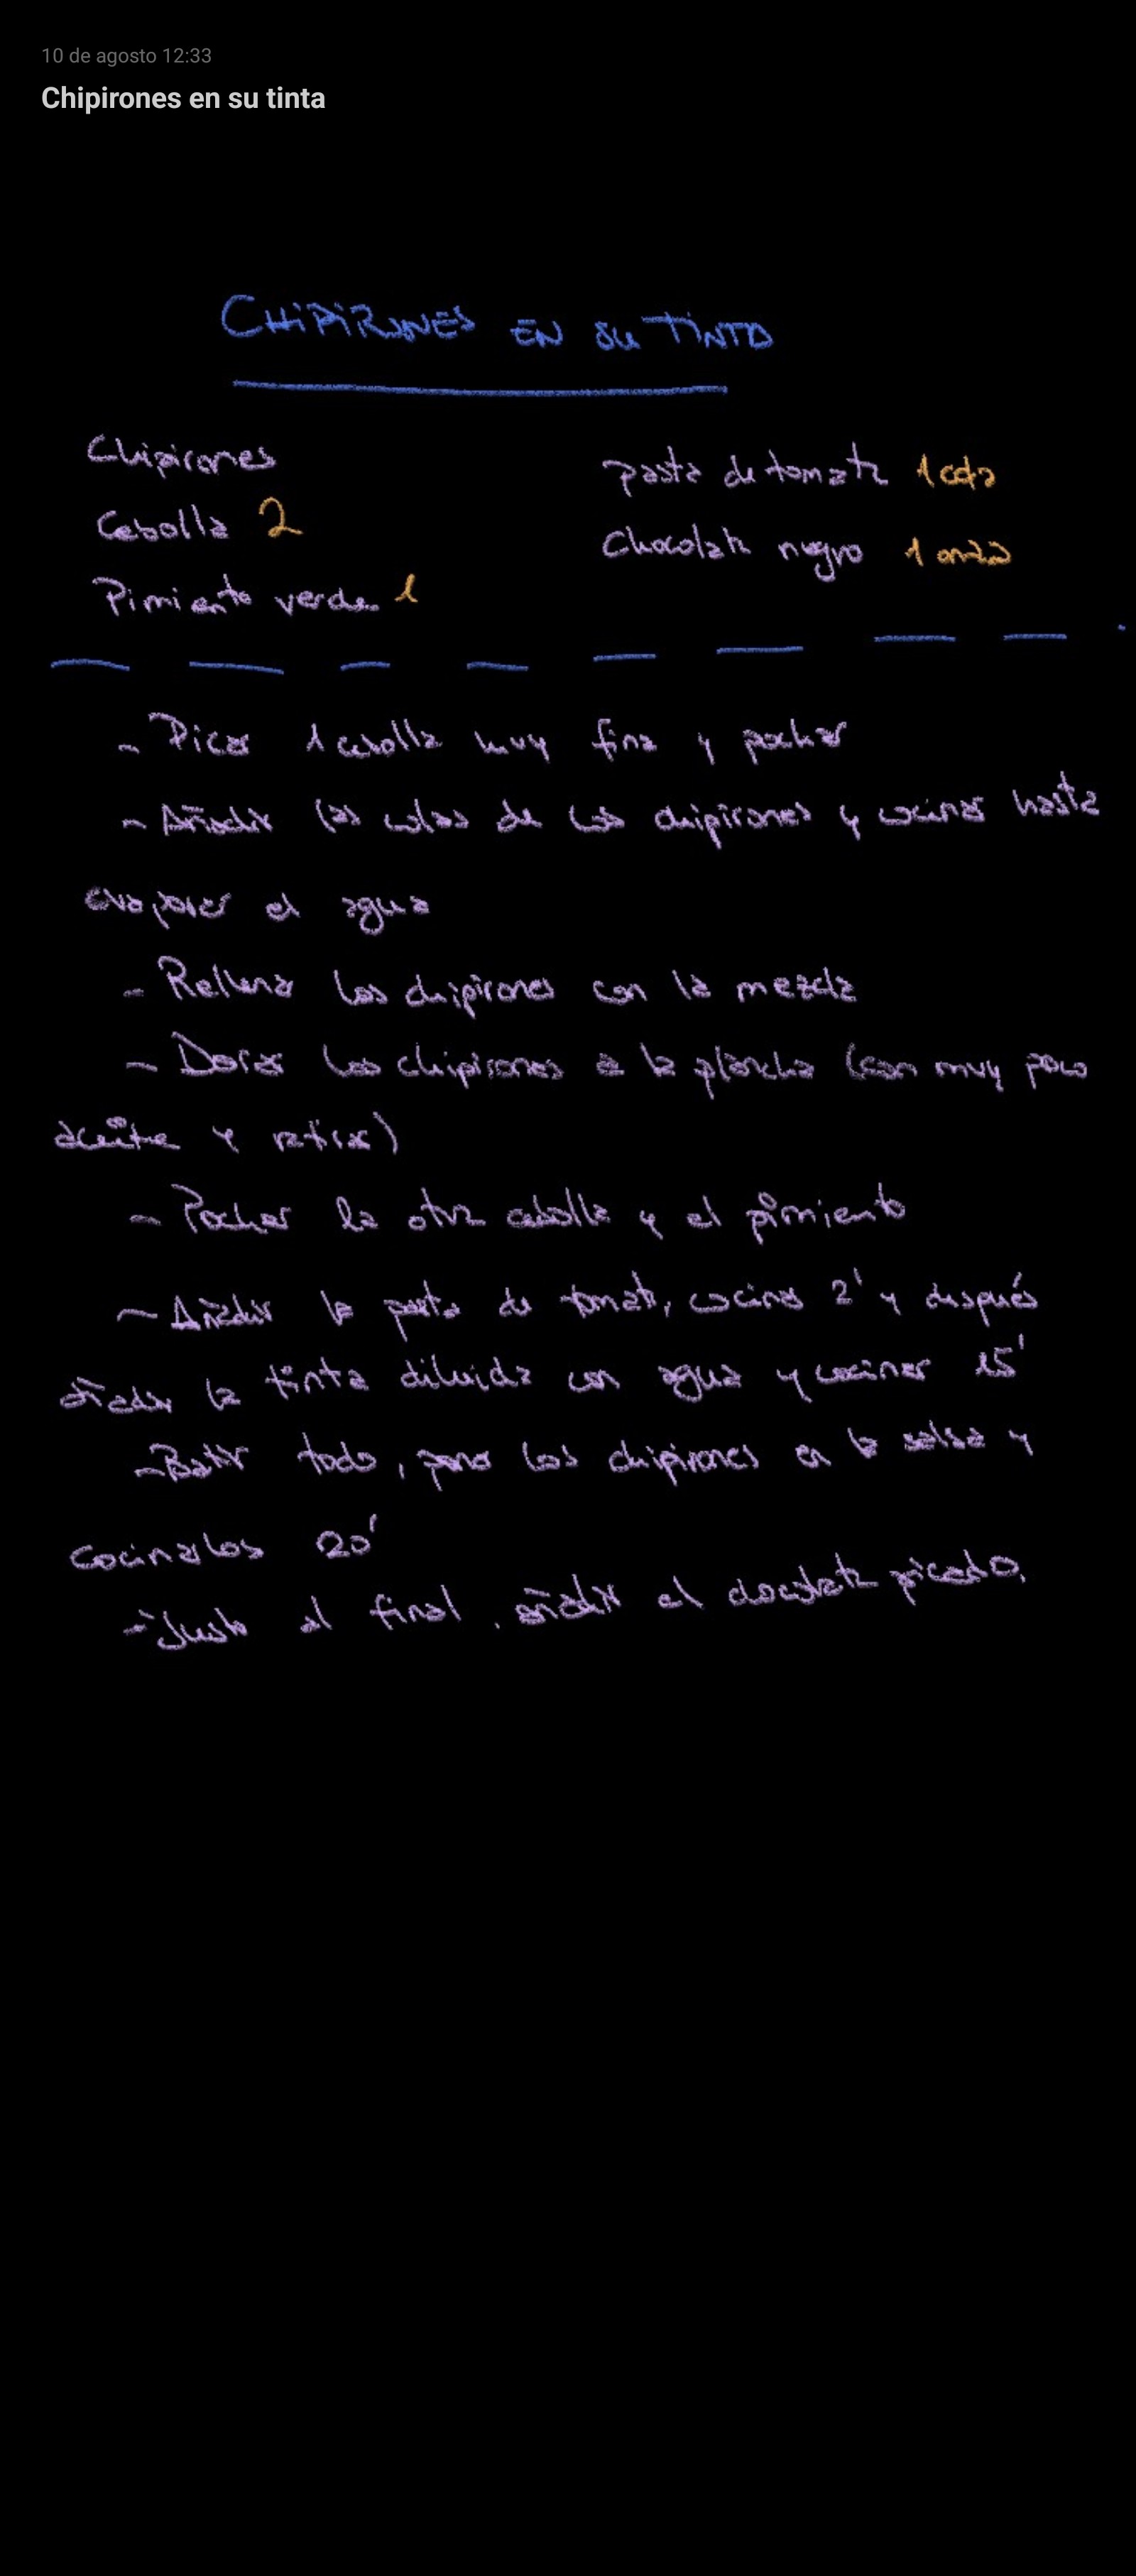 10 de agosto 12:33
Chipirones en su tinta
CHIPIRONES EN SU TINTA
Chipirones
Cebolla 2
Pimiento verde 1
pasta de tomate 1 cda
Chocolate negro 1 onza
- Picar 1 cebolla muy fina y pochar
- Añadir las colas de los chipirones y cocinar hasta
evaporar el agua
- Rellenar los chipirones con la mezcla
- Dorar los chipirones a la plancha (con muy poco
aceite y retirar)
- Pochar la otra cebolla y el pimiento
- Añadir la pasta de tomate, cocinar 2' y después
añadir la tinta diluida con agua y cocinar 15'
- Batir todo, poner los chipirones en la salsa y
cocinarlos 20'
- Justo al final, añadir el chocolate picado.